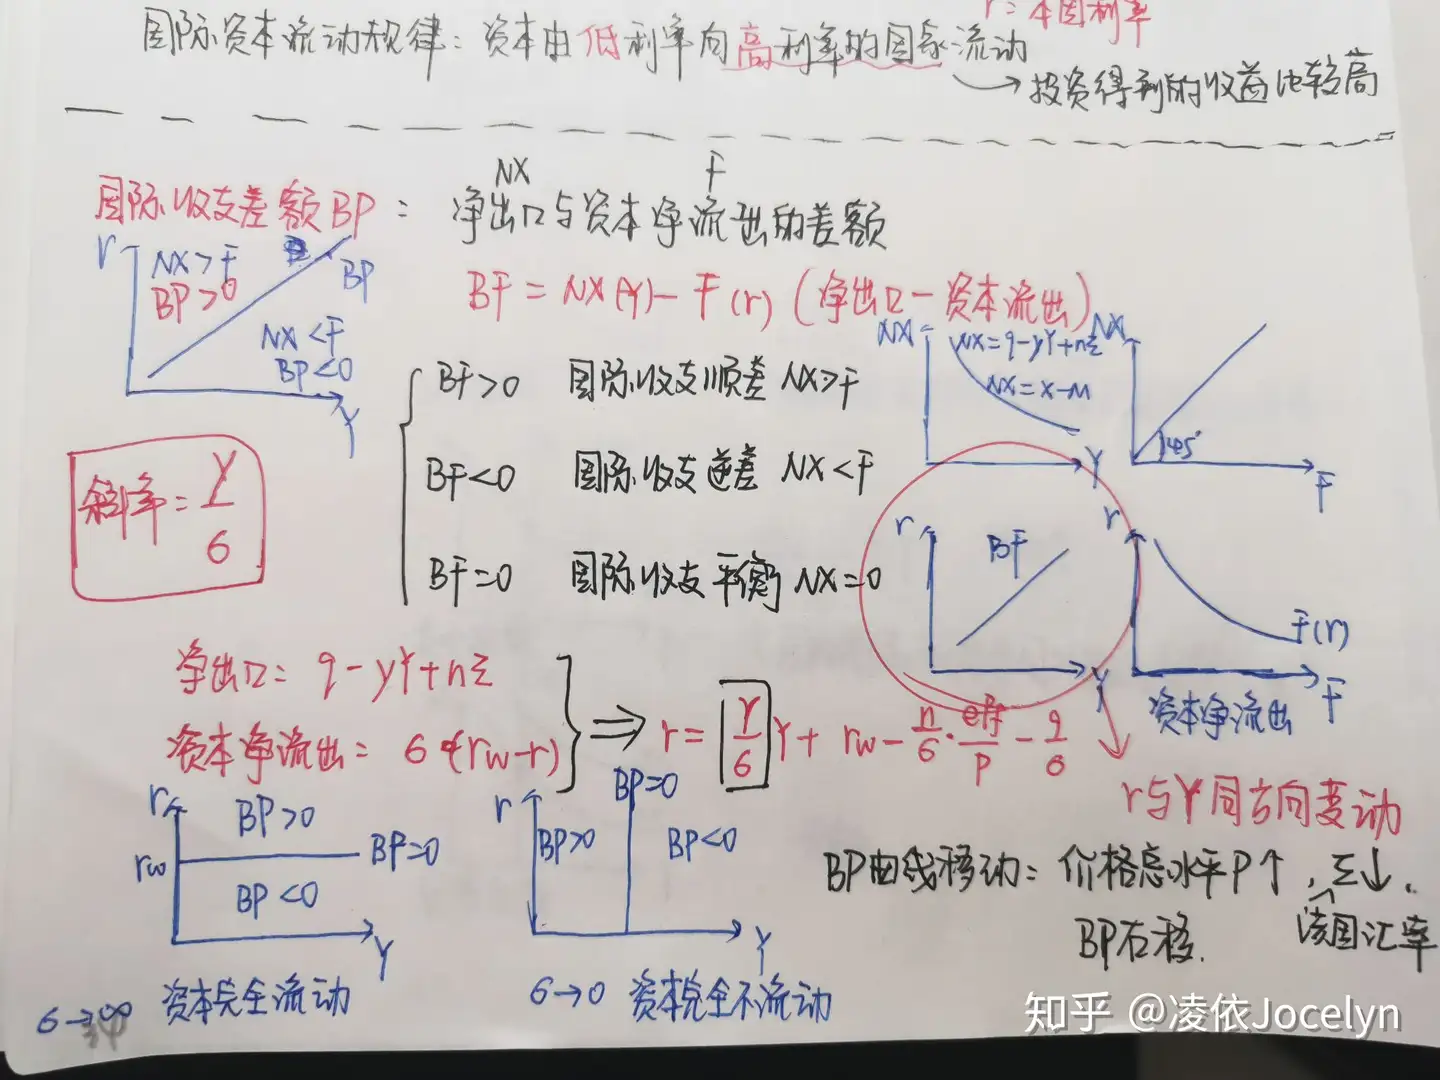 r=本国利率
国际资本流动规律：资本由低利率向高利率的国家流动
→投资得到的收益比较高
NX F
国际收支差额BP：净出口与资本净流出的差额
BF=NX(Y)-F(r)(净出口-资本流出)
r
NX>F
BP>0
BP
NX<F
BP<0
Y
斜率=γ/6
BF>0 国际收支顺差 NX>F
BF<0 国际收支逆差 NX<F
BF=0 国际收支平衡 NX=0
NX
NX=q-yY+n
NX=X-M
Y
NX
45°
F
r
BF
Y
r
F(r)
F
资本净流出
净出口：q-yY+n
资本净流出=6(rw-r)
⇒r=γ/6Y+rw-n/6·/P-q/6
r与Y同方向变动
r
rw
BP>0
BP=0
BP<0
Y
6→∞ 资本完全流动
r
BP=0
BP>0
BP<0
Y
6→0 资本完全不流动
BP曲线移动：价格总水平P↑，↓，
BP右移.
该国汇率
知乎 @凌依Jocelyn